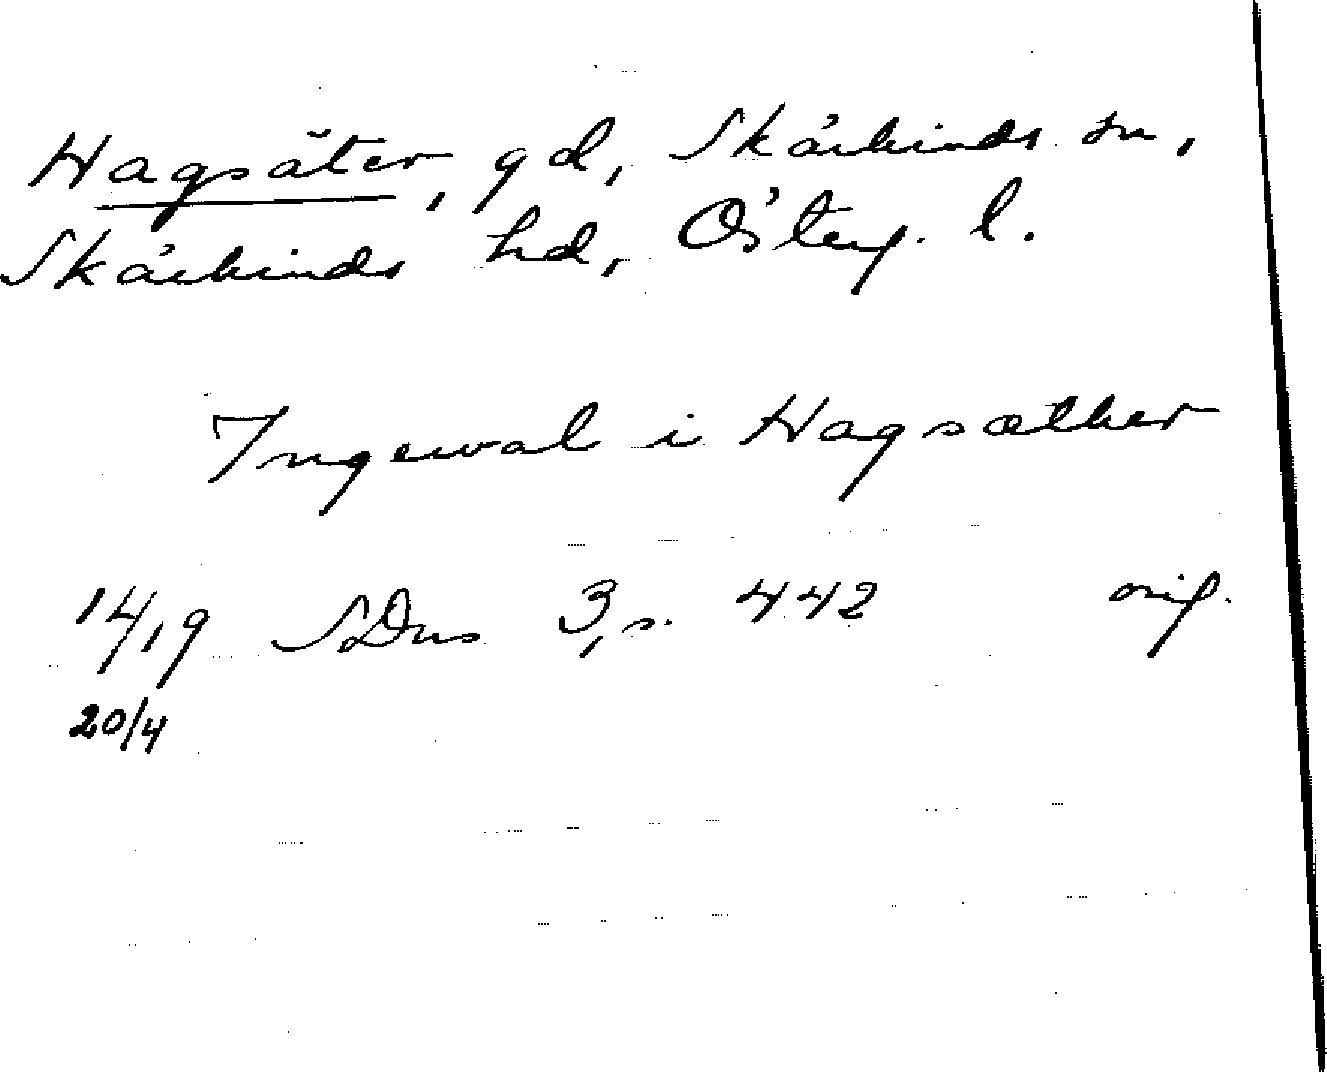 Hagsäter, gd, Skärkinds sn,
Skärkinds hd, Österg. l.
Ingewal i Hagsæther
1419 SDns 3, s. 442 orig.
20/4